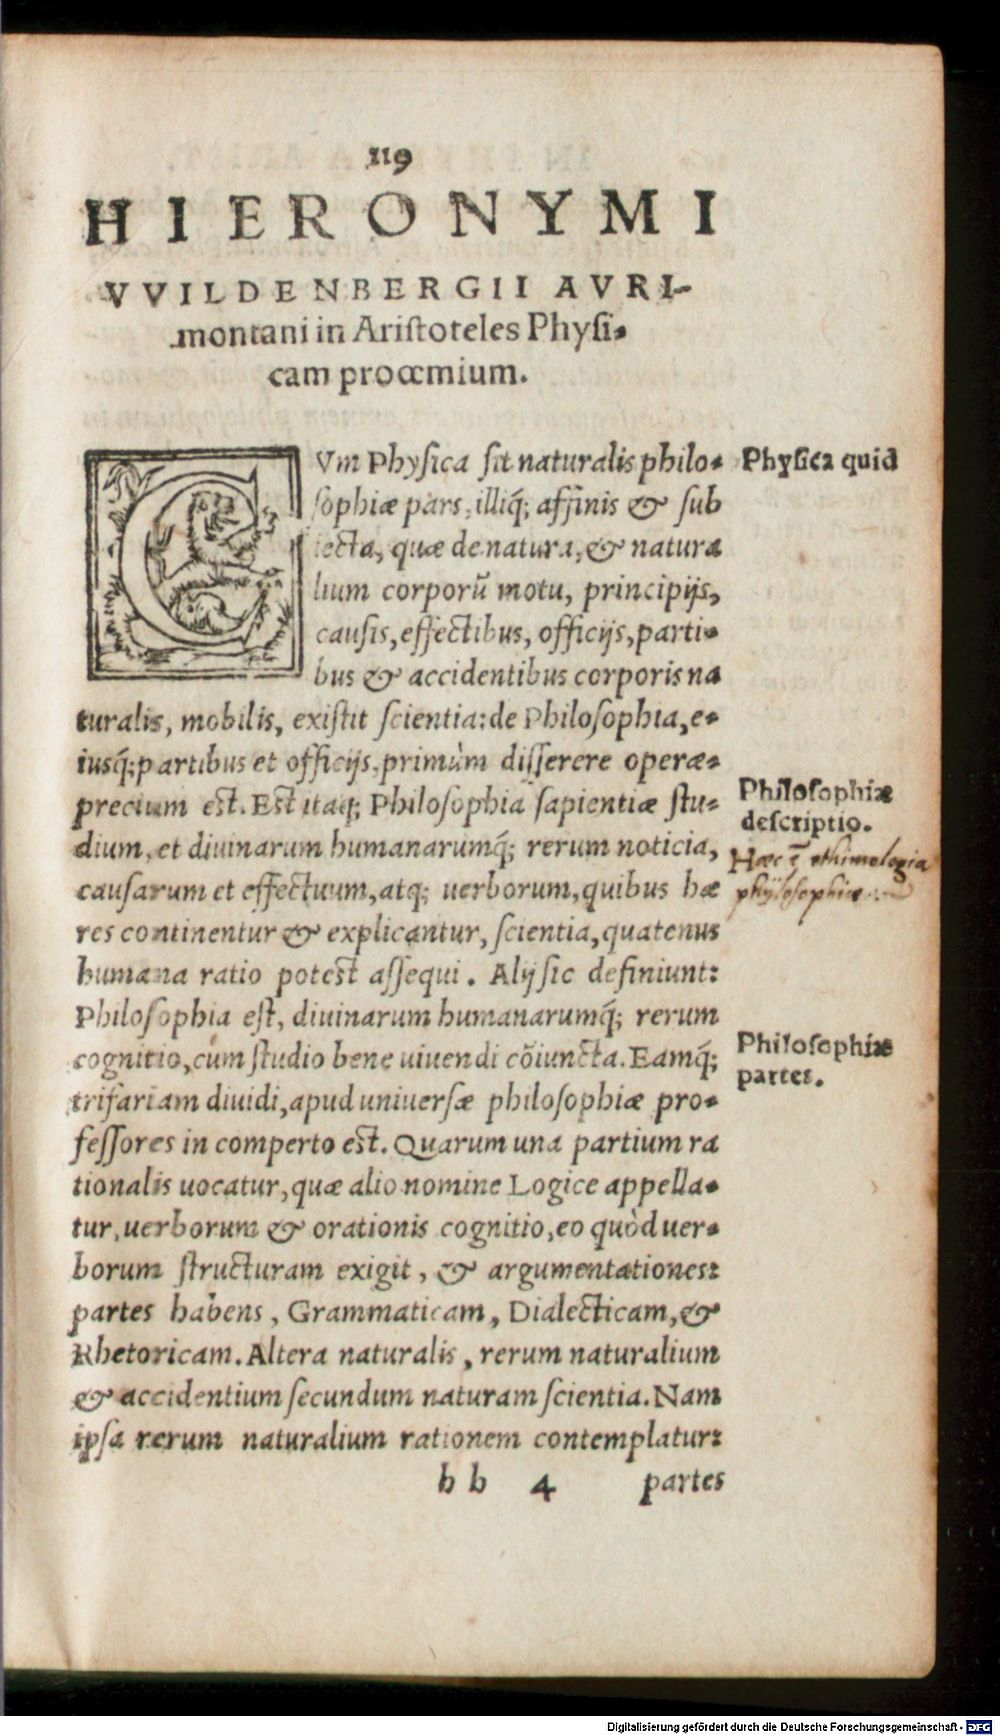 119
HIERONYMI
VVILDENBERGII AVRI-
montani in Aristoteles Physi-
cam proœmium.
CVm Physica sit naturalis philo-
sophiæ pars, illiq́; affinis & sub
iecta, quæ de natura, & natura
lium corporũ motu, principijs,
causis, effectibus, officijs, parti-
bus & accidentibus corporis na
turalis, mobilis, existit scientia: de Philosophia, e-
iusq́; partibus et officijs, primùm disserere operæ-
precium est. Est itaq; Philosophia sapientiæ stu-
dium, et diuinarum humanarumq́; rerum noticia,
causarum et effectuum, atq; uerborum, quibus hæ
res continentur & explicantur, scientia, quatenus
humana ratio potest assequi. Alij sic definiunt:
Philosophia est, diuinarum humanarumq́; rerum
cognitio, cùm studio bene uiuendi cõiuncta. Eamq́;
trifariam diuidi, apud uniuersæ philosophiæ pro-
fessores in comperto est. Quarum una partium ra
tionalis uocatur, quæ alio nomine Logice appella-
tur, uerborum & orationis cognitio, eo quòd uer-
borum structuram exigit, & argumentationes:
partes habens, Grammaticam, Dialecticam, &
Rhetoricam. Altera naturalis, rerum naturalium
& accidentium secundum naturam scientia. Nam
ipsa rerum naturalium rationem contemplatur:
bb 4 partes
Physica quid
Philosophiæ
descriptio.
Hæc ẽ ethimologia
phÿlosophiæ
Philosophiæ
partes.
Digitalisierung gefördert durch die Deutsche Forschungsgemeinschaft - DFG